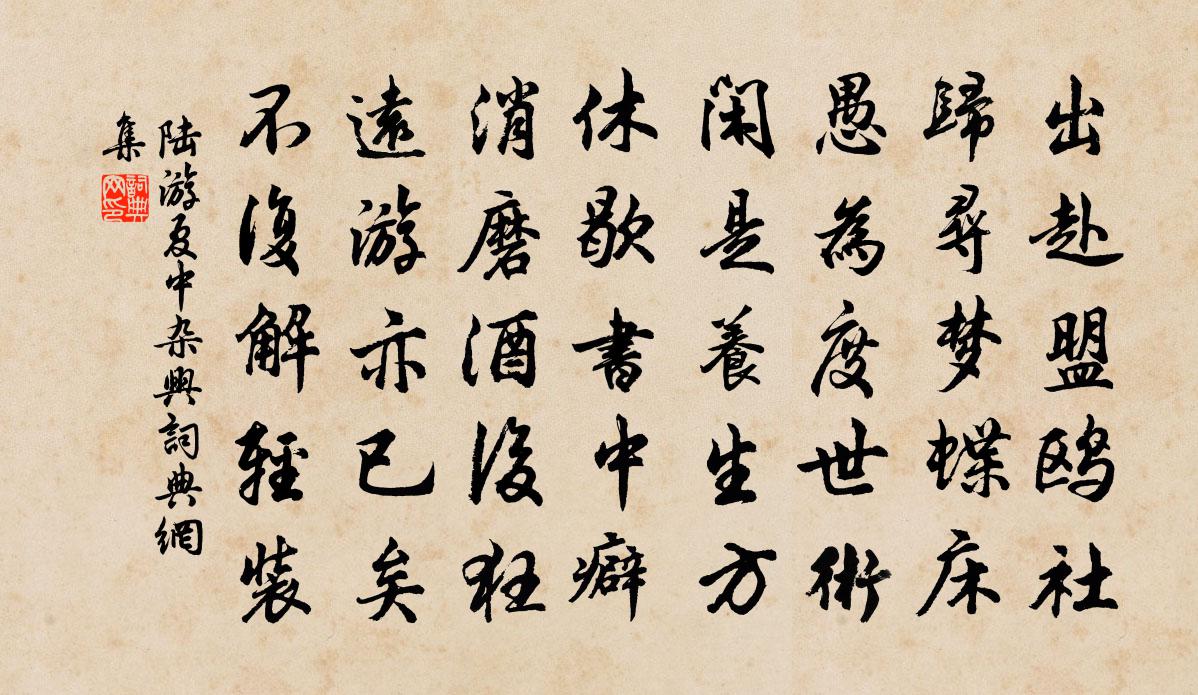 出赴盟鸥社
歸尋梦蝶床
愚為度世術
闲是養生方
休歇書中癖
消磨酒後狂
遠游亦已矣
不復解輕裝
陆游夏中杂興詞典網
集
詞典
网印